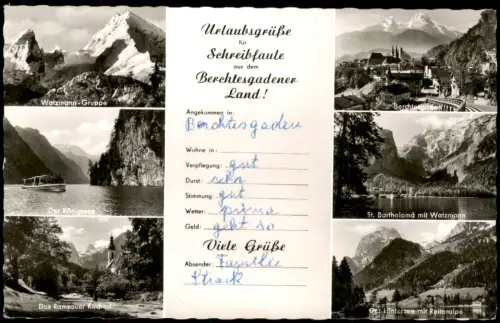 Watzmann-Gruppe
Der Königssee
Das Ramsauer Kircherl
Urlaubsgrüße
für
Schreibfaule
aus dem
Berchtesgadener
Land!
Angekommen in:
Berchtesgaden
Wohne in:
Verpflegung: gut
Durst: sehr
Stimmung: gut
Wetter: prima
Geld: geht so
Viele Grüße
Absender: Familie
Strack
Berchtesgaden
St. Bartholomä mit Watzmann
Der Hintersee mit Reiteralpe